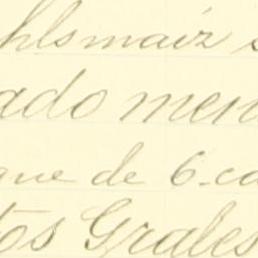 hlsmaiz s
ado men
que de 6-ca
tos Grales